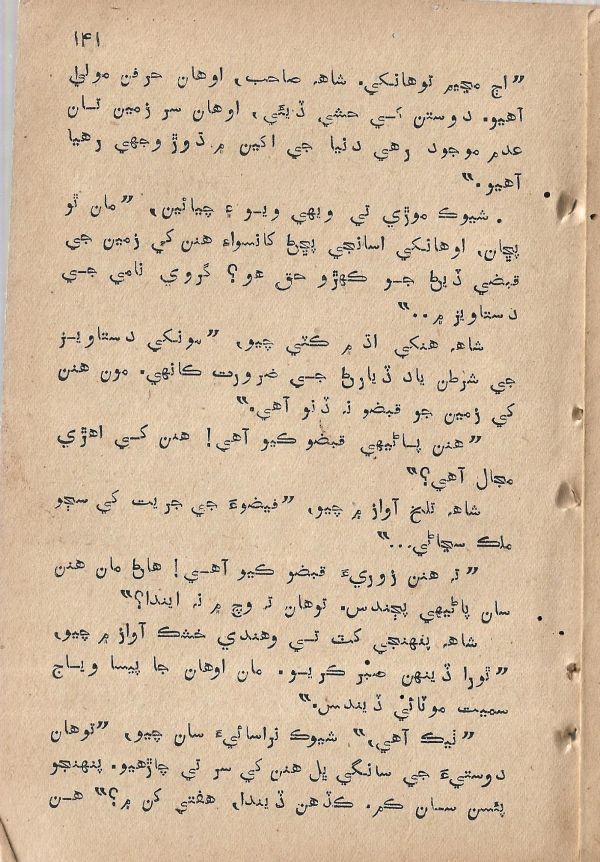 ۱۴۱
”اڄ مڃيم توهانکي. شاهه صاحب، اوهان حرفن مولیٰ
آهيو. دوستن کي حشي ڏيئي، اوهان سر زمين تان
عدم موجود رهي دنيا جي اکين ۾ ڌوڙ وجهي رهيا
آهيو.“
شيوڪ موڙي تي ويهي ويو ۽ چيائين، ”مان ٿو
پڇان، اوهانکي اسانجي پڇڻ کانسواءِ هنن کي زمين جي
قبضي ڏيڻ جو ڪهڙو حق هو؟ گروي نامي جي
دستاويز ۾..“
شاهه هنکي اڌ ۾ ڪٽي چيو، ”مونکي دستاويز
جي شرطن ياد ڏيارڻ جي ضرورت ڪانهي. مون هنن
کي زمين جو قبضو نه ڏنو آهي.“
”هنن پاڻيهي قبضو ڪيو آهي! هنن کي اهڙي
مجال آهي؟“
شاهه تلخ آواز ۾ چيو، ”فيضوءَ جي جريت کي سڄو
ملڪ سڃاڻي...“
”ته هنن زوريءَ قبضو ڪيو آهي! هاڻ مان هنن
سان پاڻيهي پڄندس. توهان ته وچ ۾ نه ايندا؟“
شاهه پنهنجي کٽ تي وهندي خشڪ آواز ۾ چيو،
”ٿورا ڏينهن صبر ڪريو. مان اوهان جا پيسا وياج
سميت موٽائي ڏيندس.“
”ٺيڪ آهي،“ شيوڪ نراسائيءَ سان چيو، ”توهان
دوستيءَ جي سانگي ڀل هنن کي سر تي چاڙهيو. پنهنجو
پئسن سان ڪم. ڪڏهن ڏيندا، هفتي کن ۾؟“ هن